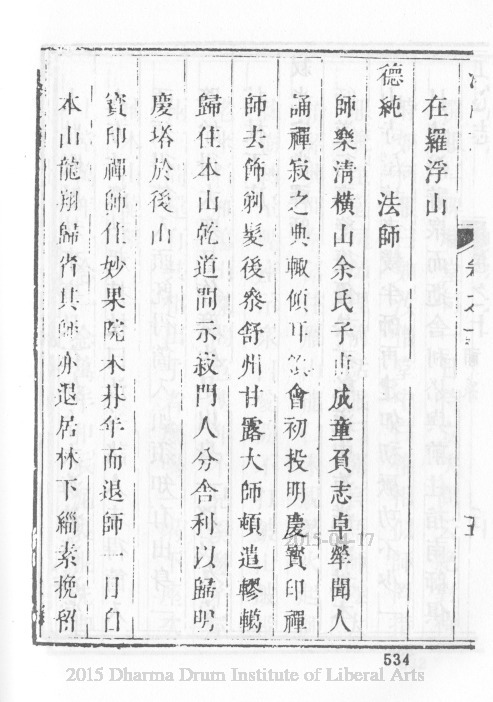 在羅浮山
德純　法師
師樂清橫山余氏子甫成童負志卓犖聞人
誦禪寂之典輙傾耳會初投明慶寶印禪
師去飾剃髮後叅舒州甘露大師頓遣轇轕
歸住本山乾道間示寂門人分舍利以歸明
慶塔於後山
寶印禪師住妙果院未朞年而退師一日白
本山龍翔歸省其師亦退居林下緇素挽留
2015-04-17
534
2015 Dharma Drum Institute of Liberal Arts